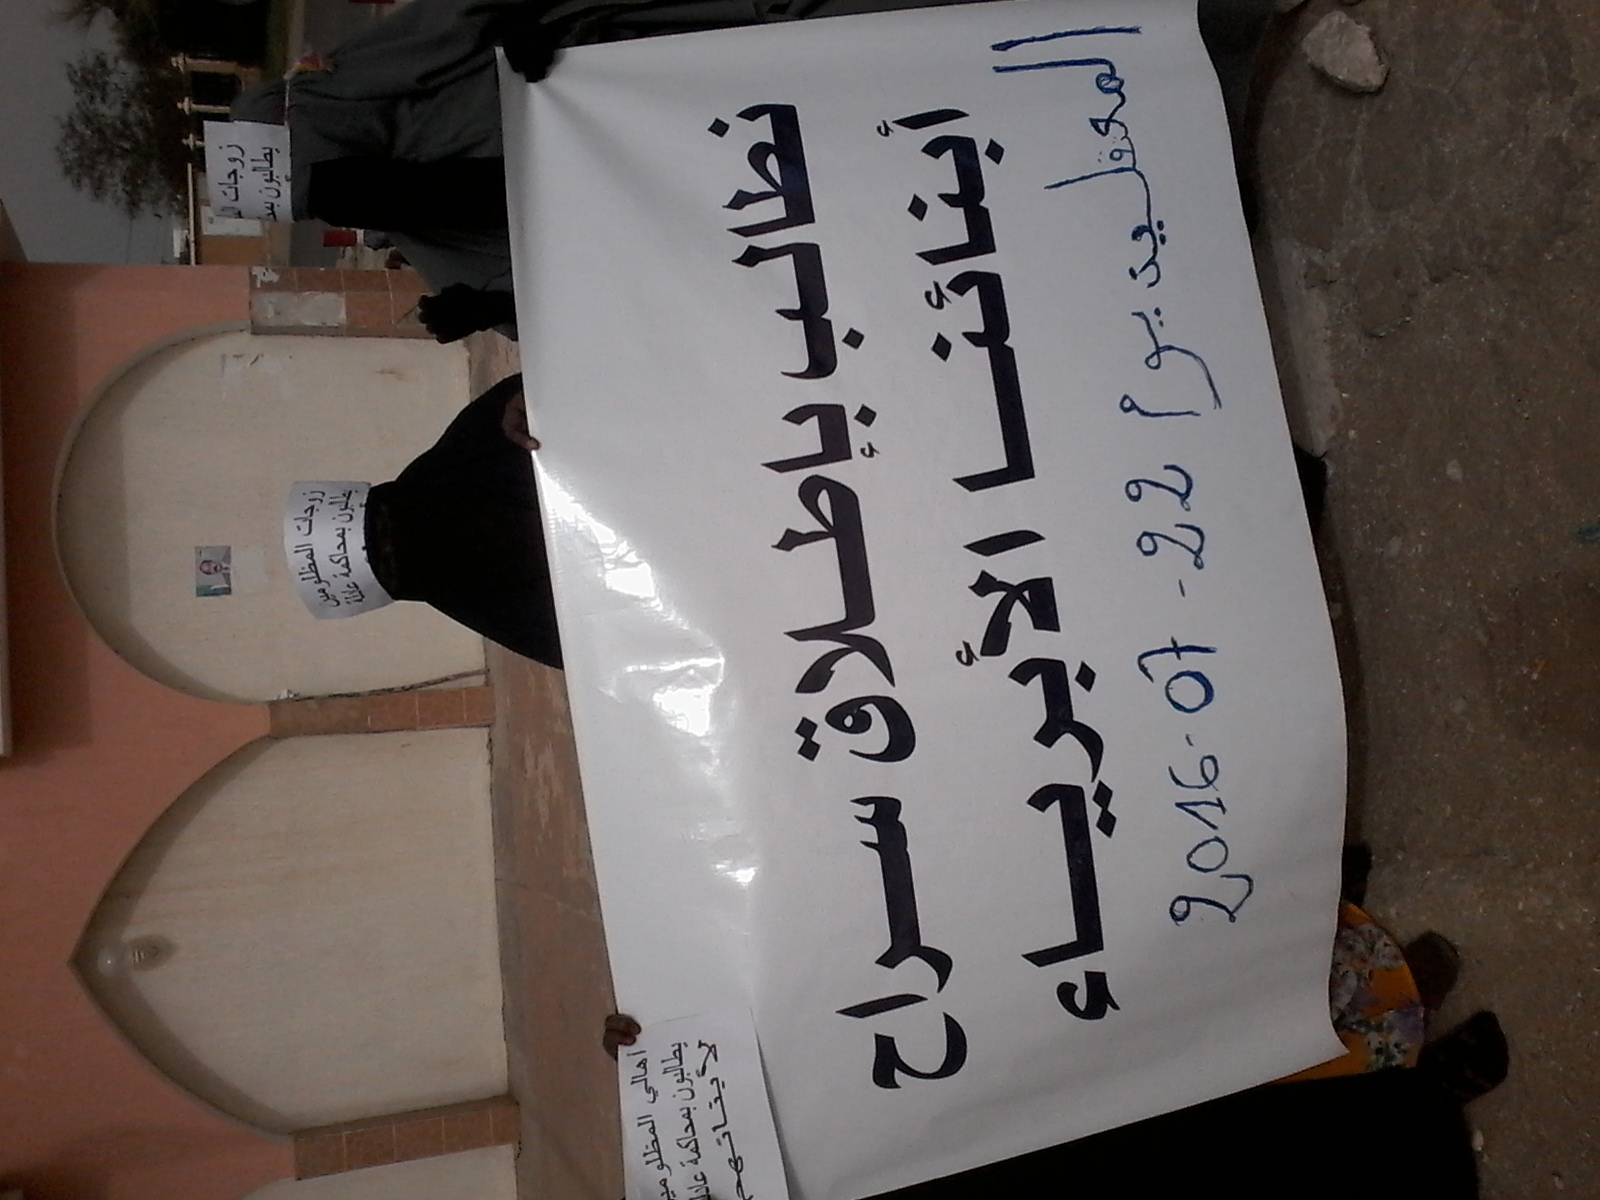 نطالب بإطلاق سراح
أبنائنا الأبرياء
المعقليد يوم 22 - 07 - 2016
زوجات المظلومين
يطالبون بمحاكمة عادلة
زوجات
يطالبون
اهالي المظلومين
يطالبون بمحاكمة عادلة
لأبنائهم